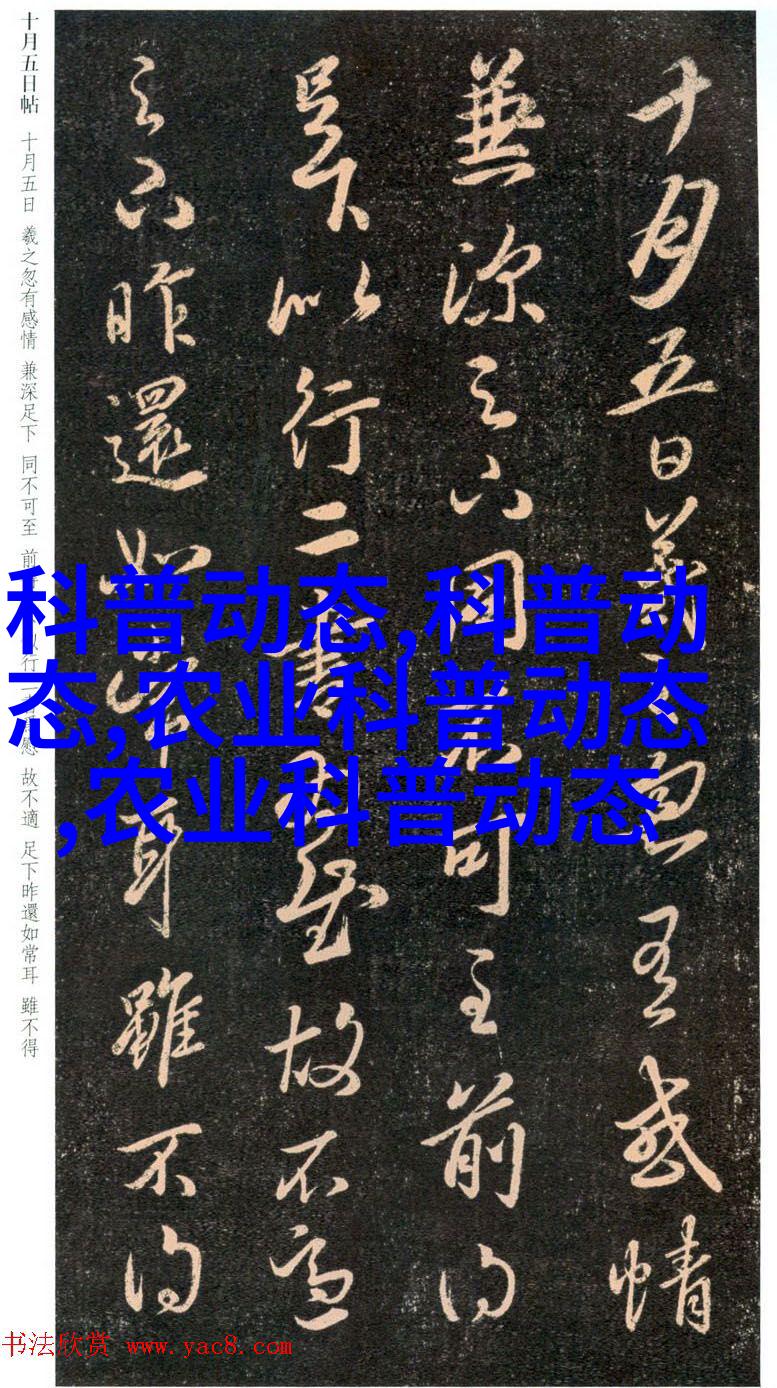 十月五日羲之忽有感情
兼深足下同不可至前得
以行二書慰故不適
足下昨還如常耳雖不得
十月五日帖 十月五日 羲之忽有感情 兼深足下 同不可至 前 以行二 慰 故不適 足下昨還如常耳 雖不得
科普动态,科普动
态,农业科普动态
,农业科普动态
书法欣赏 www.yac8.com